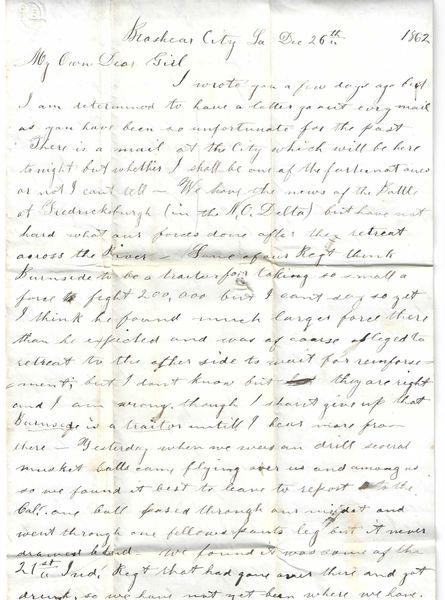 Brashear City La Dec 26th 1862
My Own Dear Girl
I wrote you a few days ago but
I am determined to have a letter go out evry mail
as you have been so unfortunate for the past
There is a mail at the City which will be here
tonight but whether I shall be one of the fortunat ones
or not I cant tell — We have the news of the Battle
at Fredricksburgh (in the N.O. Delta) but have not
hard what our forses done after the retreat
across the River — Some of our Regt think
Burnside to be a traitor for taking so small a
force to fight 200,000 but I cant say so yet
I think he found much larger force there
than he expected and was of coarse obleged to
retreat to the other side to wait for reinforse-
ment; but I dont know but they are right
and I am wrong, though I shant give up that
Burnside is a traitor untill I hear more from
there — Yesterday when we was on drill several
musket balls came flying over us and among us
so we found it best to leave to report the
Ball. one ball passed through our midst and
went through one fellows pants leg but it never
drawed blood. We found it was some of the
21st Ind. Regt that had gone over there and got
drunk, so we have not yet been where we have